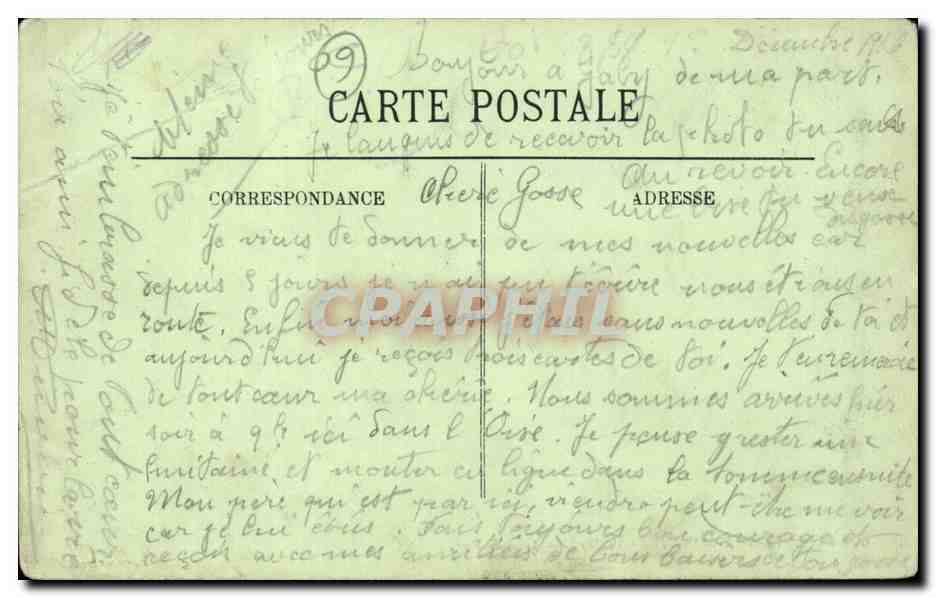 Décembre 1916
Bonjour a Gaby de ma part.
69
CARTE POSTALE
Je languis de recevoir la photo tu sais
Au revoir. Encore
une bise tu
CORRESPONDANCE
ADRESSE
Cherie Gosse
Je viens te donner de mes nouvelles car
depuis 5 jours je n'ai pu t'écrire nous étions en
route. Enfin moi aussi j'étais sans nouvelles de toi et
aujourd'hui je reçois trois cartes de toi. Je t'en remercie
de tout cœur ma cherie. Nous sommes arrivés hier
soir à 9h ici dans l'Oise. Je pense y rester une
huitaine et monter en ligne dans la Somme ensuite
Mon père qui est par ici, viendra peut-être me voir
car je lui écris. Sois toujours bon courage et
reçois avec mes amitiés de bons baisers de ton gosse
Même
adresse
Je t'embrasse de tout cœur
Ton ami
pour la vie
CPAPHIL